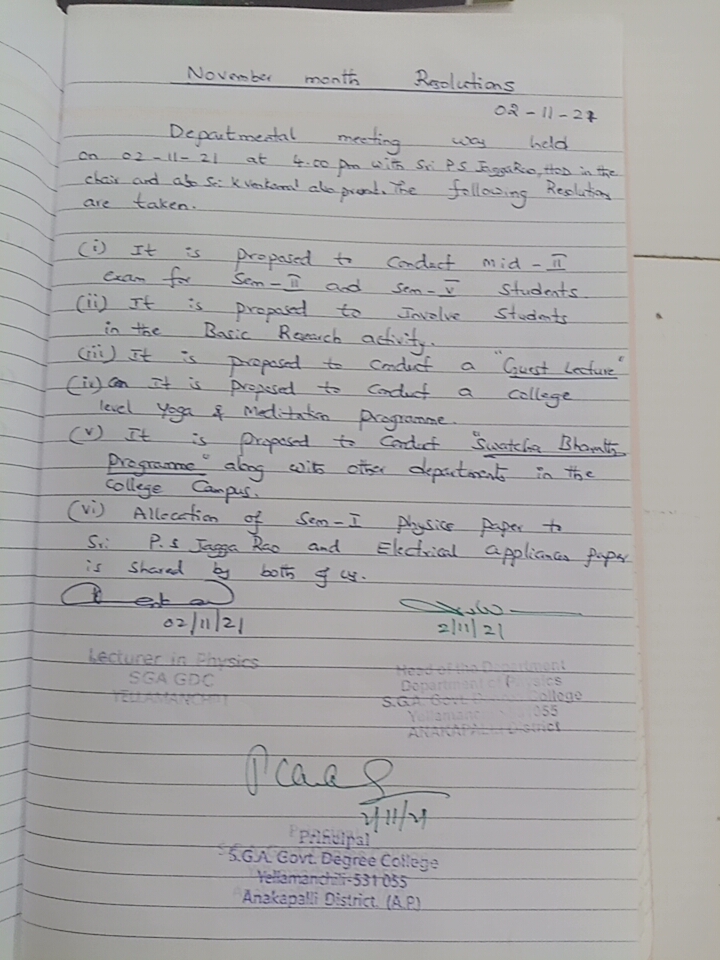 November month Resolutions
02-11-21
Departmental meeting was held
on 02-11-21 at 4.00 pm with Sri P.S JaggaRao, HOD in the
chair and also Sri K Venkanna also present. The following Resolutions
are taken.
(i) It is proposed to conduct mid-II
exam for Sem-II and Sem-V Students.
(ii) It is proposed to Involve Students
in the Basic Research activity.
(iii) It is proposed to conduct a "Guest Lecture"
(iv) It is proposed to conduct a college
level Yoga & Meditation programme.
(v) It is proposed to conduct "Swatcha Bharath
Programme" along with other departments in the
College Campus.
(vi) Allocation of Sem-I physics paper to
Sri P.S Jagga Rao and Electrical appliances paper
is shared by both of us.
02/11/21
2/11/21
Lecturer in Physics
SGA GDC
YELLAMANCHILI
Head of the Department
Department of Physics
S.G.A. Govt. Degree College
Yellamanchili-531055
ANAKAPALLI District
2/11/21
Principal
S.G.A. Govt. Degree College
Yellamanchili-531055
Anakapalli District. (A.P)